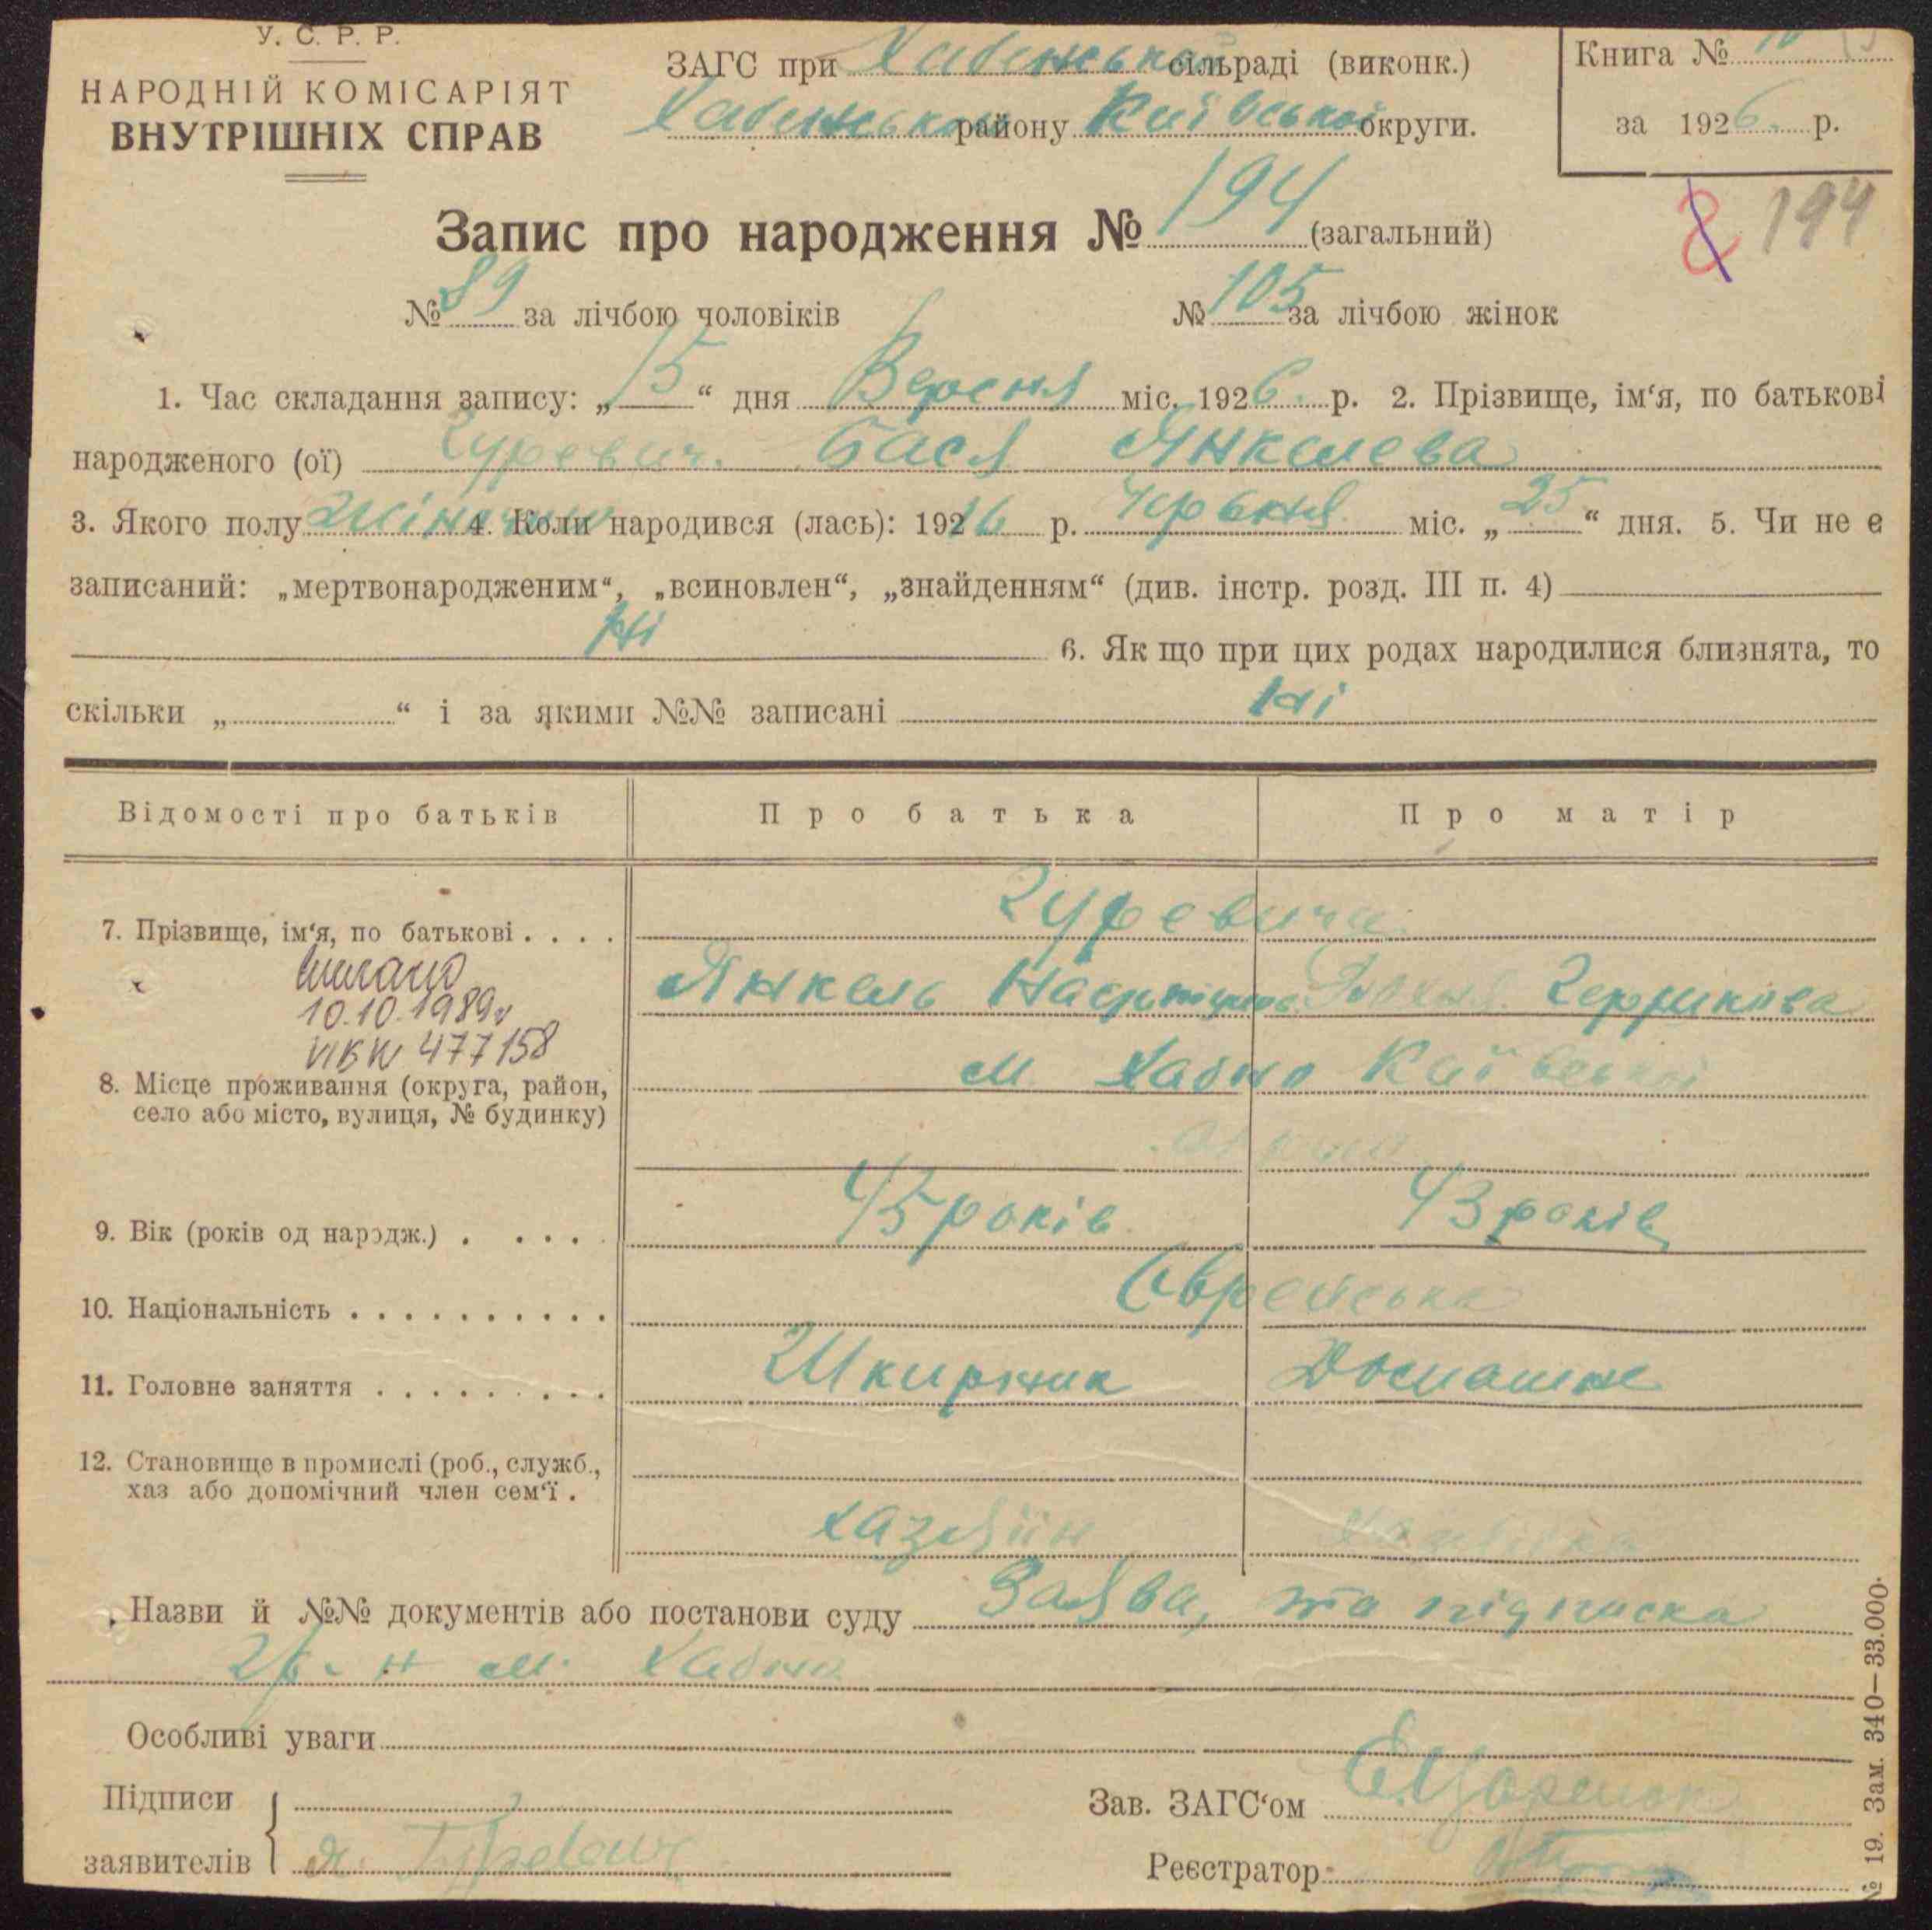 У. С. Р. Р.
НАРОДНІЙ КОМІСАРІЯТ
ВНУТРІШНІХ СПРАВ
ЗАГС при Хабенській сільраді (виконк.)
Хабенського району Київської округи.
Книга №
за 1926 р.
Запис про народження № 194 (загальний)
194
№ 89 за лічбою чоловіків № 105 за лічбою жінок
1. Час складання запису: „15“ дня Вересня міс. 1926 р. 2. Прізвище, ім‘я, по батькові
народженого (ої) Гуревич Бася Янкелева
3. Якого полу Жіночого 4. Коли народився (лась): 1926 р. Червня міс. „25“ дня. 5. Чи не є
записаний: „мертвонародженим“, „всиновлен“, „знайденням“ (див. інстр. розд. III п. 4)
Ні 6. Як що при цих родах народилися близнята, то
скільки „ “ і за якими №№ записані Ні
Відомості про батьків Про батька Про матір
7. Прізвище, ім‘я, по батькові Гуревичи
Янкель
10.10.1989
477158
8. Місце проживання (округа, район, м Хабно Київської
село або місто, вулиця, № будинку)
округи
9. Вік (років од нарэдж.) 45 років 43 років
10. Національність Єврейська
11. Головне заняття Шкирник Домашне
12. Становище в промислі (роб., служб.,
хаз або допомічний член сем‘ї. Хазяїн
Назви й №№ документів або постанови суду Заява, та підписка
м. Хабно
Особливі уваги
Підписи Зав. ЗАГС‘ом
заявителів Гуревич Реєстратор
№ 19. Зам. 340—33.000.